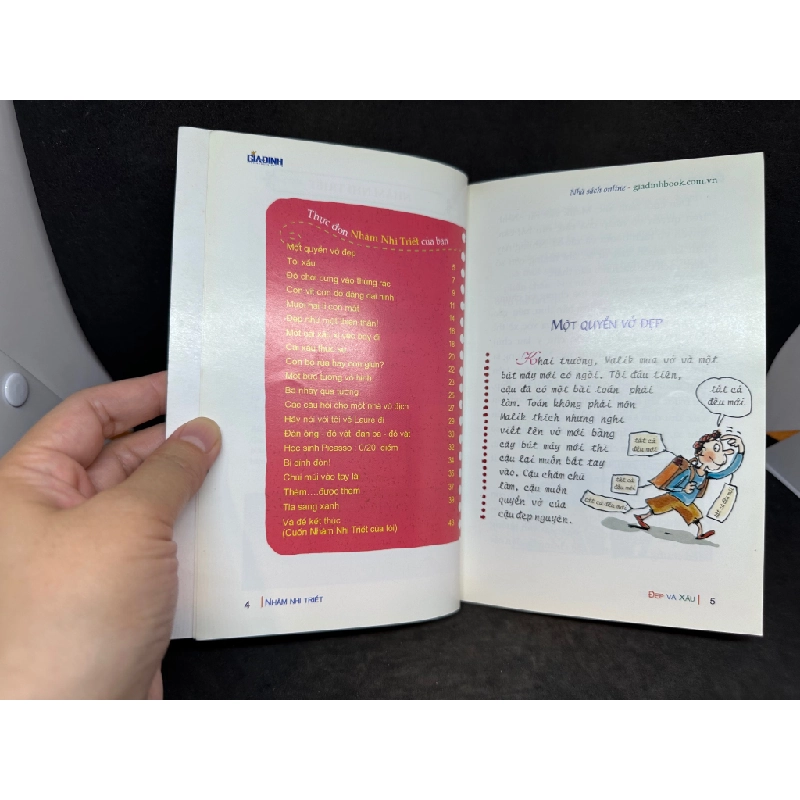 GIADINH
Thực đơn Nhâm Nhi Triết của bạn
Một quyển vở đẹp 5
Tôi xấu 7
Đồ chơi cũng vào thùng rác 9
Con vẽ con đò đáng 11
Mười hai con mắt 14
Đẹp như một thiên thần! 15
bay đi 18
20
Con bọ rùa hay con giun? 22
Một bức tường vô hình 23
Ba nhảy qua tường 25
Các câu hỏi cho một nhà vô địch 26
Hãy nói với tôi về Laura đi 29
Đàn ông - đồ vật, đàn bà - đồ vật 30
Học sinh Picasso 0/20 điểm 32
Bị sinh đôi! 34
Chùi mũi vào tay là 35
Thèm....được thơm 37
Tia sáng xanh 39
Và để kết thúc
(Cuốn Nhâm Nhi Triết của tôi) 40
4 | NHÂM NHI TRIẾT
Nhà sách online - giadinhbook.com.vn
MỘT QUYỂN VỞ ĐẸP
Khai trường, Valik mua vở và một
bút máy mới có ngòi. Tối đầu tiên,
cậu đã có một bài toán phải
làm. Toán không phải môn
Valik thích nhưng nghĩ
viết lên vở mới bằng
cây bút máy mới thì
cậu lại muốn bắt tay
vào. Cậu chăm chú
làm, cậu muốn
quyển vở của
cậu đẹp nguyên.
tất cả
đều mới
tất cả
đều mới
tất cả
đều mới
tất cả đều mới
tất cả đều mới
ĐẸP VÀ XẤU | 5